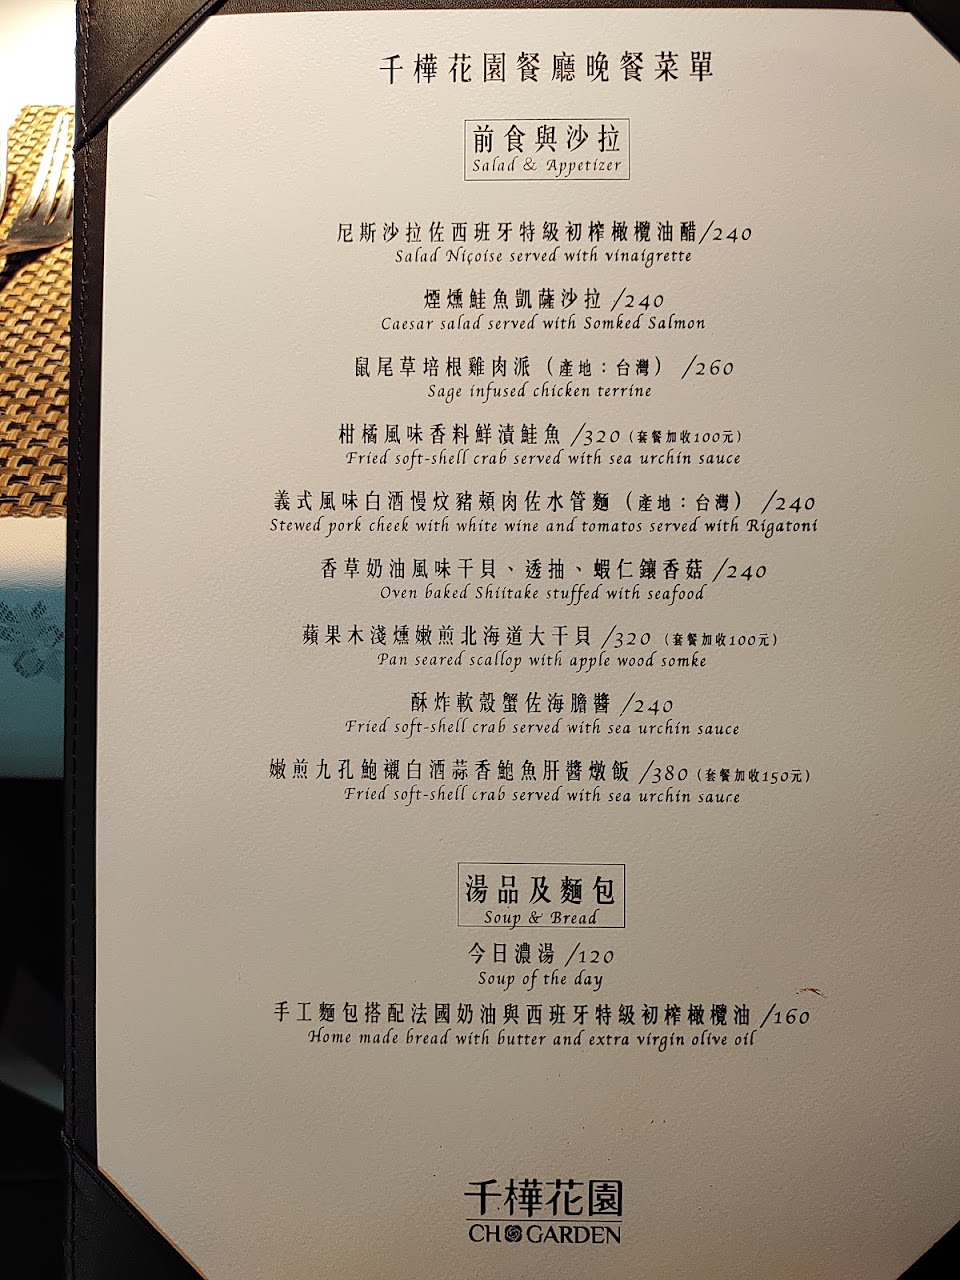 千樺花園餐廳晚餐菜單
前食與沙拉
Salad & Appetizer
尼斯沙拉佐西班牙特級初榨橄欖油醋/240
Salad Niçoise served with vinaigrette
煙燻鮭魚凱薩沙拉 /240
Caesar salad served with Somked Salmon
鼠尾草培根雞肉派（產地：台灣） /260
Sage infused chicken terrine
柑橘風味香料鮮漬鮭魚 /320 (套餐加收100元)
Fried soft-shell crab served with sea urchin sauce
義式風味白酒慢炆豬頰肉佐水管麵（產地：台灣） /240
Stewed pork cheek with white wine and tomatos served with Rigatoni
香草奶油風味干貝、透抽、蝦仁鑲香菇 /240
Oven baked Shiitake stuffed with seafood
蘋果木淺燻嫩煎北海道大干貝 /320 (套餐加收100元)
Pan seared scallop with apple wood somke
酥炸軟殼蟹佐海膽醬 /240
Fried soft-shell crab served with sea urchin sauce
嫩煎九孔鮑襯白酒蒜香鮑魚肝醬燉飯 /380 (套餐加收150元)
Fried soft-shell crab served with sea urchin sauce
湯品及麵包
Soup & Bread
今日濃湯 /120
Soup of the day
手工麵包搭配法國奶油與西班牙特級初榨橄欖油 /160
Home made bread with butter and extra virgin olive oil
千樺花園
CHO GARDEN